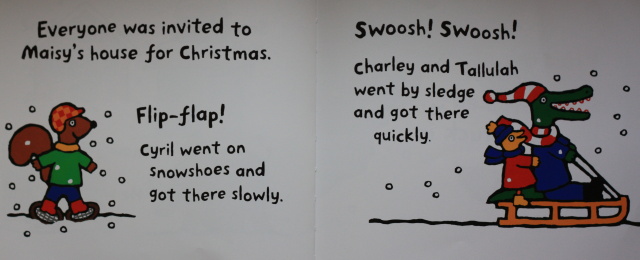 Everyone was invited to
Maisy's house for Christmas.
Flip-flap!
Cyril went on
snowshoes and
got there slowly.
Swoosh! Swoosh!
Charley and Tallulah
went by sledge
and got there
quickly.